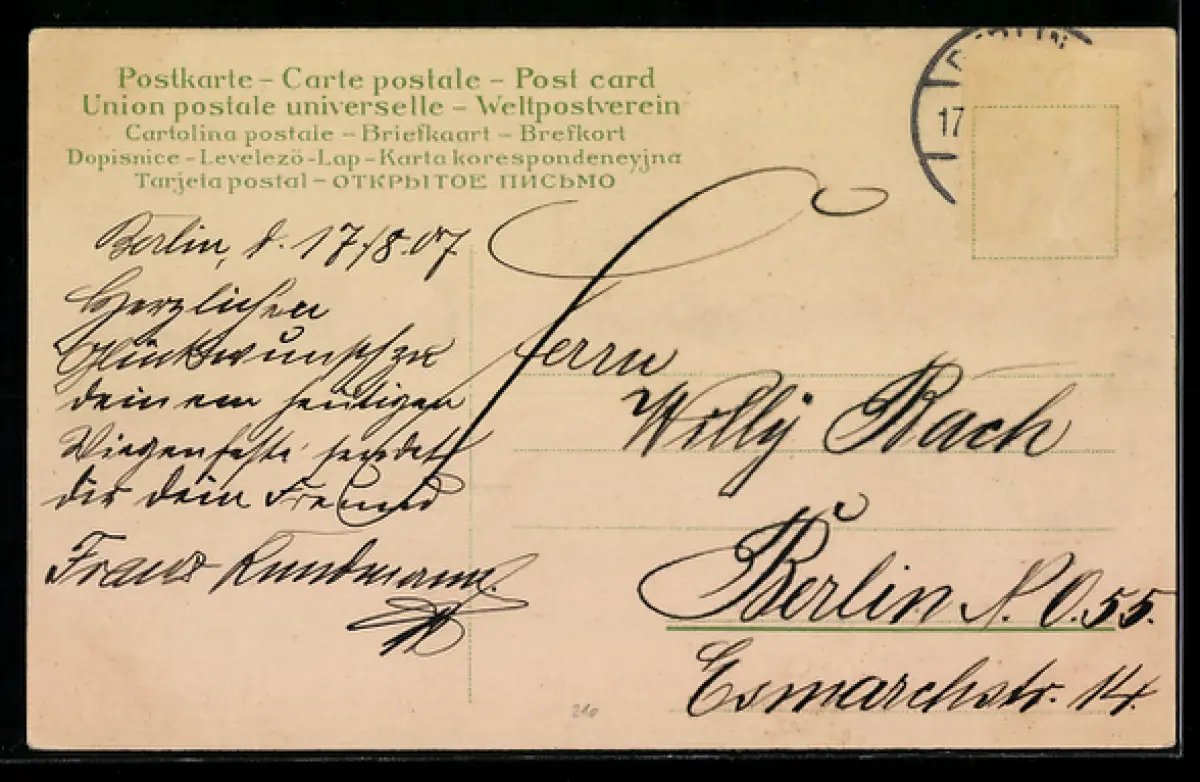 Postkarte – Carte postale – Post card
Union postale universelle – Weltpostverein
Cartolina postale – Briefkaart – Brefkort
Dopisnice - Levelező-Lap - Karta korespondencyjna
Tarjeta postal – ОТКРЫТОЕ ПИСЬМО
17
Berlin, d. 17./8.07
Herzlichen
Glückwunsch zu
deinem heutigen
Wiegenfeste sendet
dir dein Freund
Franz Kundmann.
Herrn
Willy Bach
Berlin N.O.55.
Esmarchstr. 14.
210